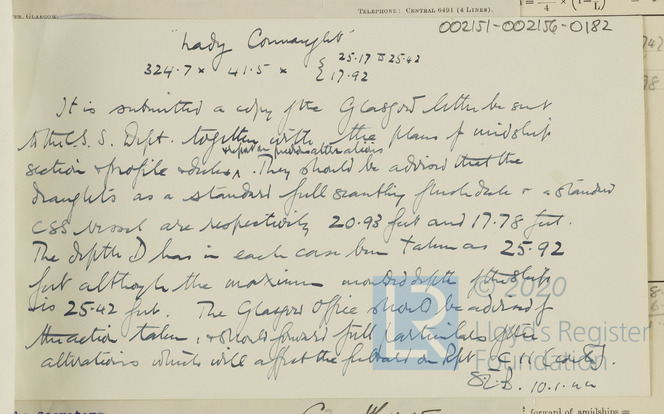 TELEPHONE: CENTRAL 6491 (4 LINES).
002151-002156-0182
"Lady Connaught"
324.7 × 41.5 × { 25.17 to 25.42
17.92
It is submitted a copy of the Glasgow letter be sent
to the S.S. Dept. together with the plans of midship
section & profile & decks. They should be advised that the
draughts as a standard full scantling flush deck & a standard
CSS vessel are respectively 20.93 feet and 17.78 feet.
The depth D has in each case been taken as 25.92
feet although the maximum moulded depth of the ship
is 25.42 feet. The Glasgow Office should be advised of
the action taken, & should forward full particulars of the
alterations which will affect the freeboard on Rpt. C.11
10.1.44
© 2020
Lloyd's Register
Foundation
forward of amidships =